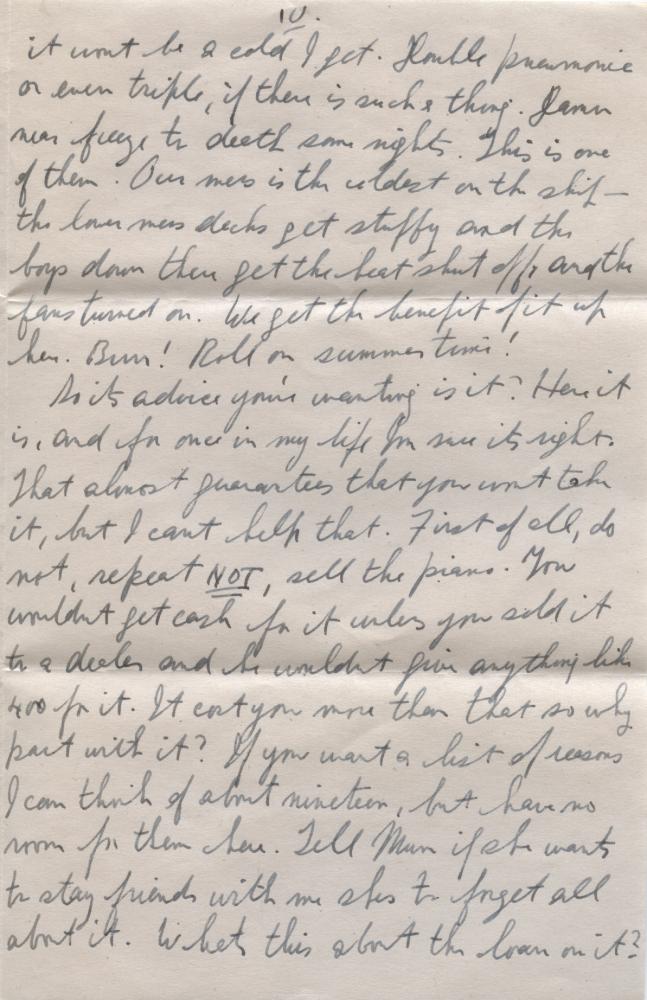 10.
it wont be a cold I get. Double pneumonia
or even triple, if there is such a thing. Damn
near freeze to death some nights. This is one
of them. Our mess is the coldest on the ship —
the lower mess decks get stuffy and the
boys down there get the heat shut off, and the
fans turned on. We get the benefit of it up
here. Burr! Roll on summer time!
So its advice you're wanting is it? Here it
is, and for once in my life Im sure its right.
That almost guarantees that you wont take
it, but I cant help that. First of all, do
not, repeat NOT, sell the piano. You
wouldnt get cash for it unless you sold it
to a dealer and he wouldnt give anything like
400 for it. It cost you more than that so why
part with it? If you want a list of reasons
I can think of about nineteen, but have no
room for them here. Tell Mum if she wants
to stay friends with me shes to forget all
about it. Whats this about the loan on it?